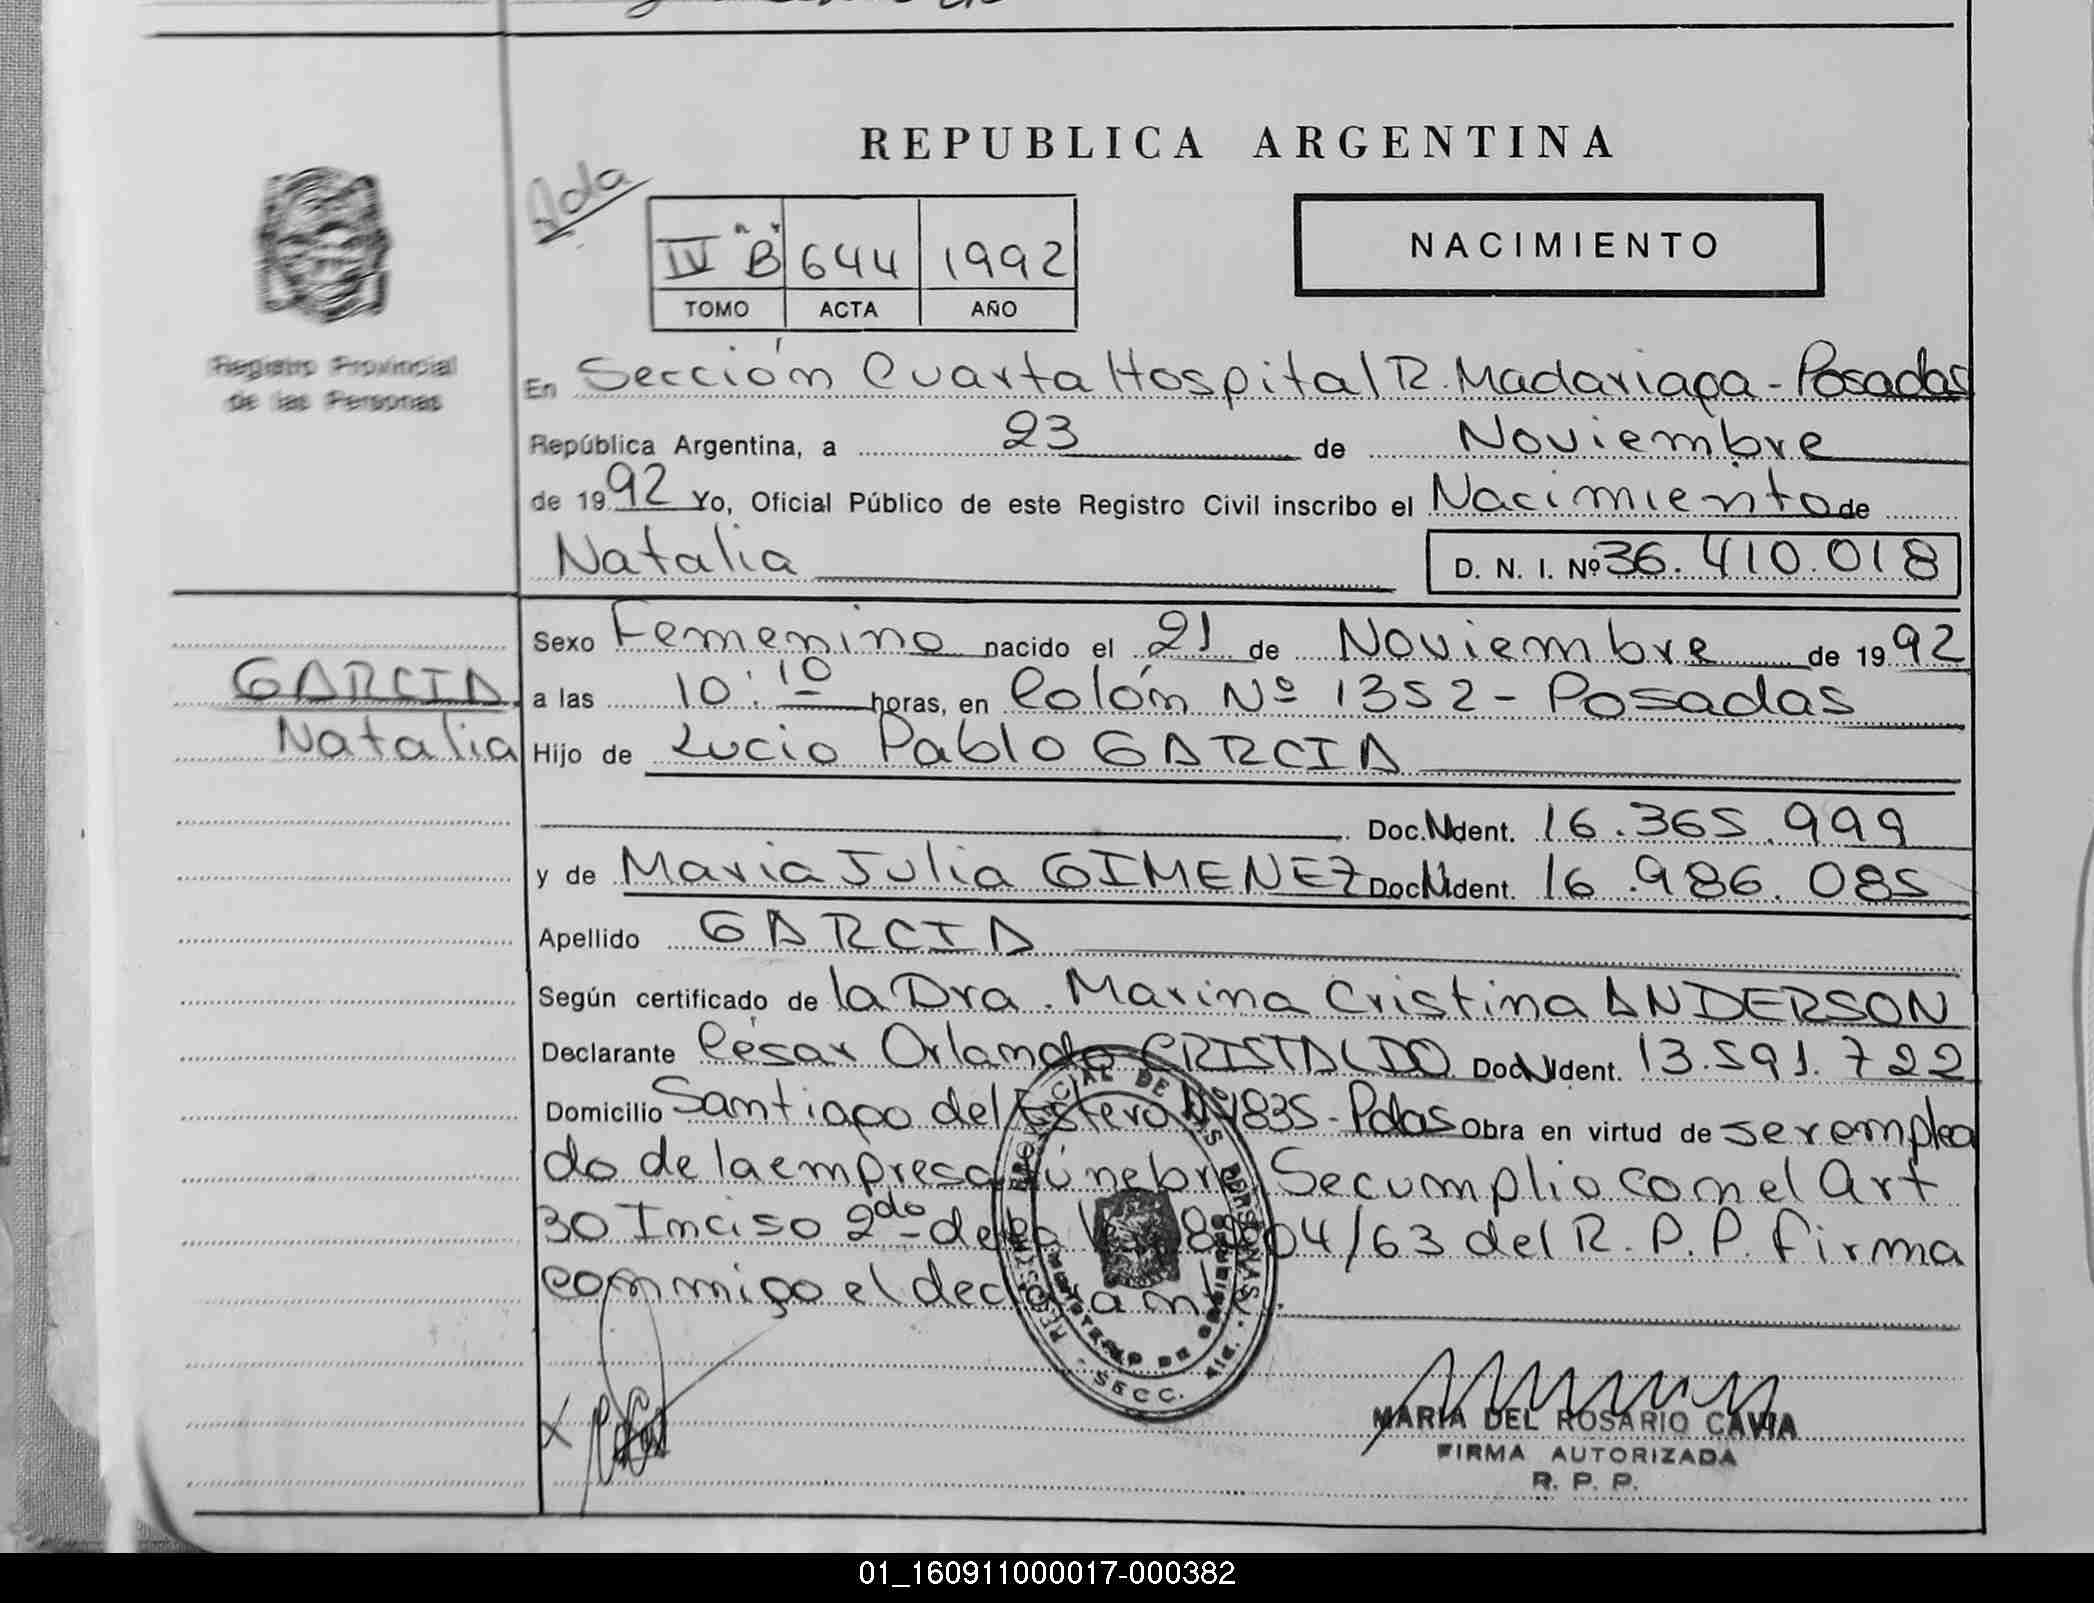 REPUBLICA ARGENTINA
Ada
IV "B" 644 1992
TOMO ACTA AÑO
NACIMIENTO
Registro Provincial
de las Personas
En Sección Cuarta Hospital R. Madariaga - Posadas
República Argentina, a 23 de Noviembre
de 1992 Yo, Oficial Público de este Registro Civil inscribo el Nacimiento de
Natalia D. N. I. Nº 36.410.018
Sexo Femenino nacido el 21 de Noviembre de 1992
GARCIA
a las 10:10 horas, en Colón Nº 1352 - Posadas
Natalia
Hijo de Lucio Pablo GARCIA
Doc. Ident. 16.365.999
y de Maria Julia GIMENEZ Doc. Ident. 16.986.085
Apellido GARCIA
Según certificado de la Dra. Marina Cristina ANDERSON
Declarante César Orlando CRISTALDO Doc. Ident. 13.591.722
Domicilio Santiago del Estero Nº 1835 - Pdas Obra en virtud de ser emplea
do de la empresa fúnebre Se cumplio con el Art
30 Inciso 2do de la 04/63 del R.P.P. firma
conmigo el declarante.
REGISTRO PROVINCIAL DE LAS PERSONAS
MINISTERIO DE GOBIERNO
SECC.
MARIA DEL ROSARIO CAVIA
FIRMA AUTORIZADA
R. P. P.
01_160911000017-000382